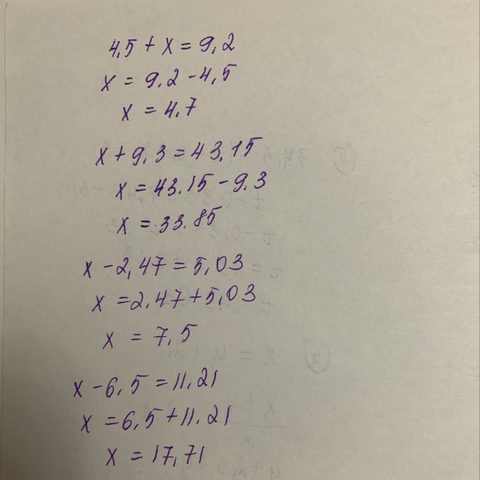 4,5 + x = 9,2
x = 9.2 - 4,5
x = 4,7
x + 9,3 = 43,15
x = 43.15 - 9.3
x = 33.85
x - 2,47 = 5,03
x = 2,47 + 5,03
x = 7,5
x - 6,5 = 11,21
x = 6,5 + 11.21
x = 17,71